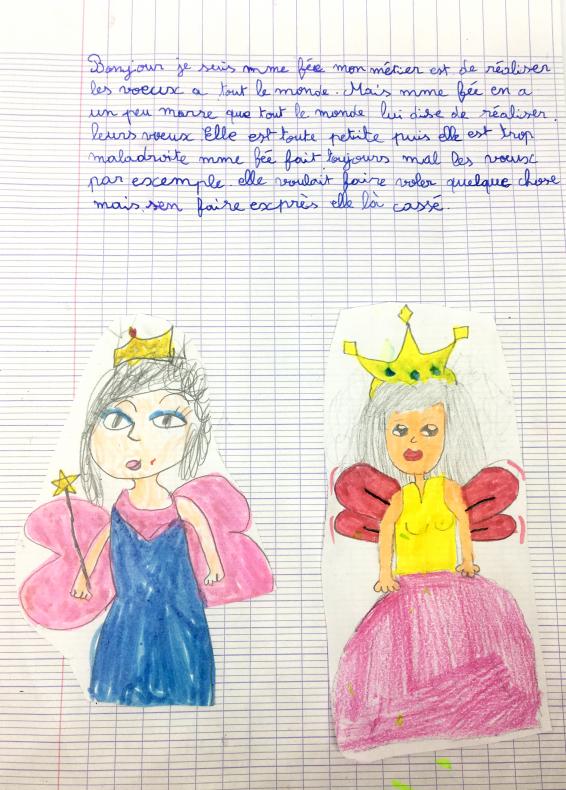 Bonjour je suis mme fée mon métier est de réaliser
les voeux a tout le monde. Mais mme fée en a
un peu marre que tout le monde lui dise de réaliser
leurs voeux Elle est toute petite puis elle est trop
maladroite mme fée fait toujours mal les voeux
par excemple. elle voulait faire voler quelque chose
mais sen faire exprès elle là cassé.